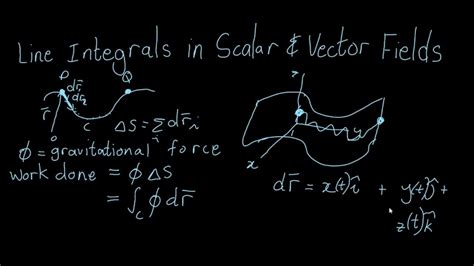 Line Integrals in Scalar & Vector Fields
P
Q
dr̄₁
dr̄₂
r̄
c
O
ΔS = ∑dr̄ᵢ
φ = gravitational force
work done = φ ΔS
= ∫_C φ dr̄
z
y
x
dr̄ = x(t)î + y(t)ĵ +
z(t)k̂